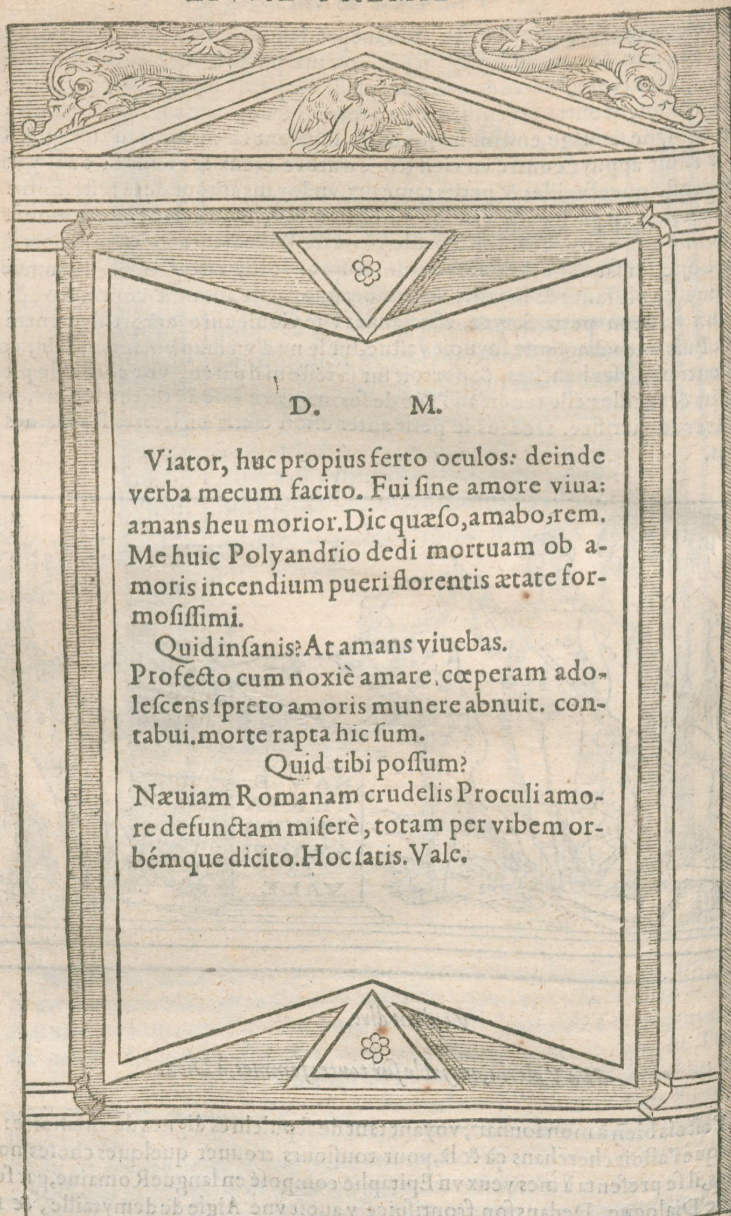 D. M.
Viator, huc propius ferto oculos: deinde
verba mecum facito. Fui ſine amore viua:
amans heu morior. Dic quæſo, amabo, rem.
Me huic Polyandrio dedi mortuam ob a-
moris incendium pueri florentis ætate for-
moſiſſimi.
Quid inſanis? At amans viuebas.
Profecto cum noxiè amare cœperam ado-
leſcens ſpreto amoris munere abnuit. con-
tabui. morte rapta hic ſum.
Quid tibi poſſum?
Næuiam Romanam crudelis Proculi amo-
re defunctam miſerè, totam per vrbem or-
bémque dicito. Hoc ſatis. Vale.